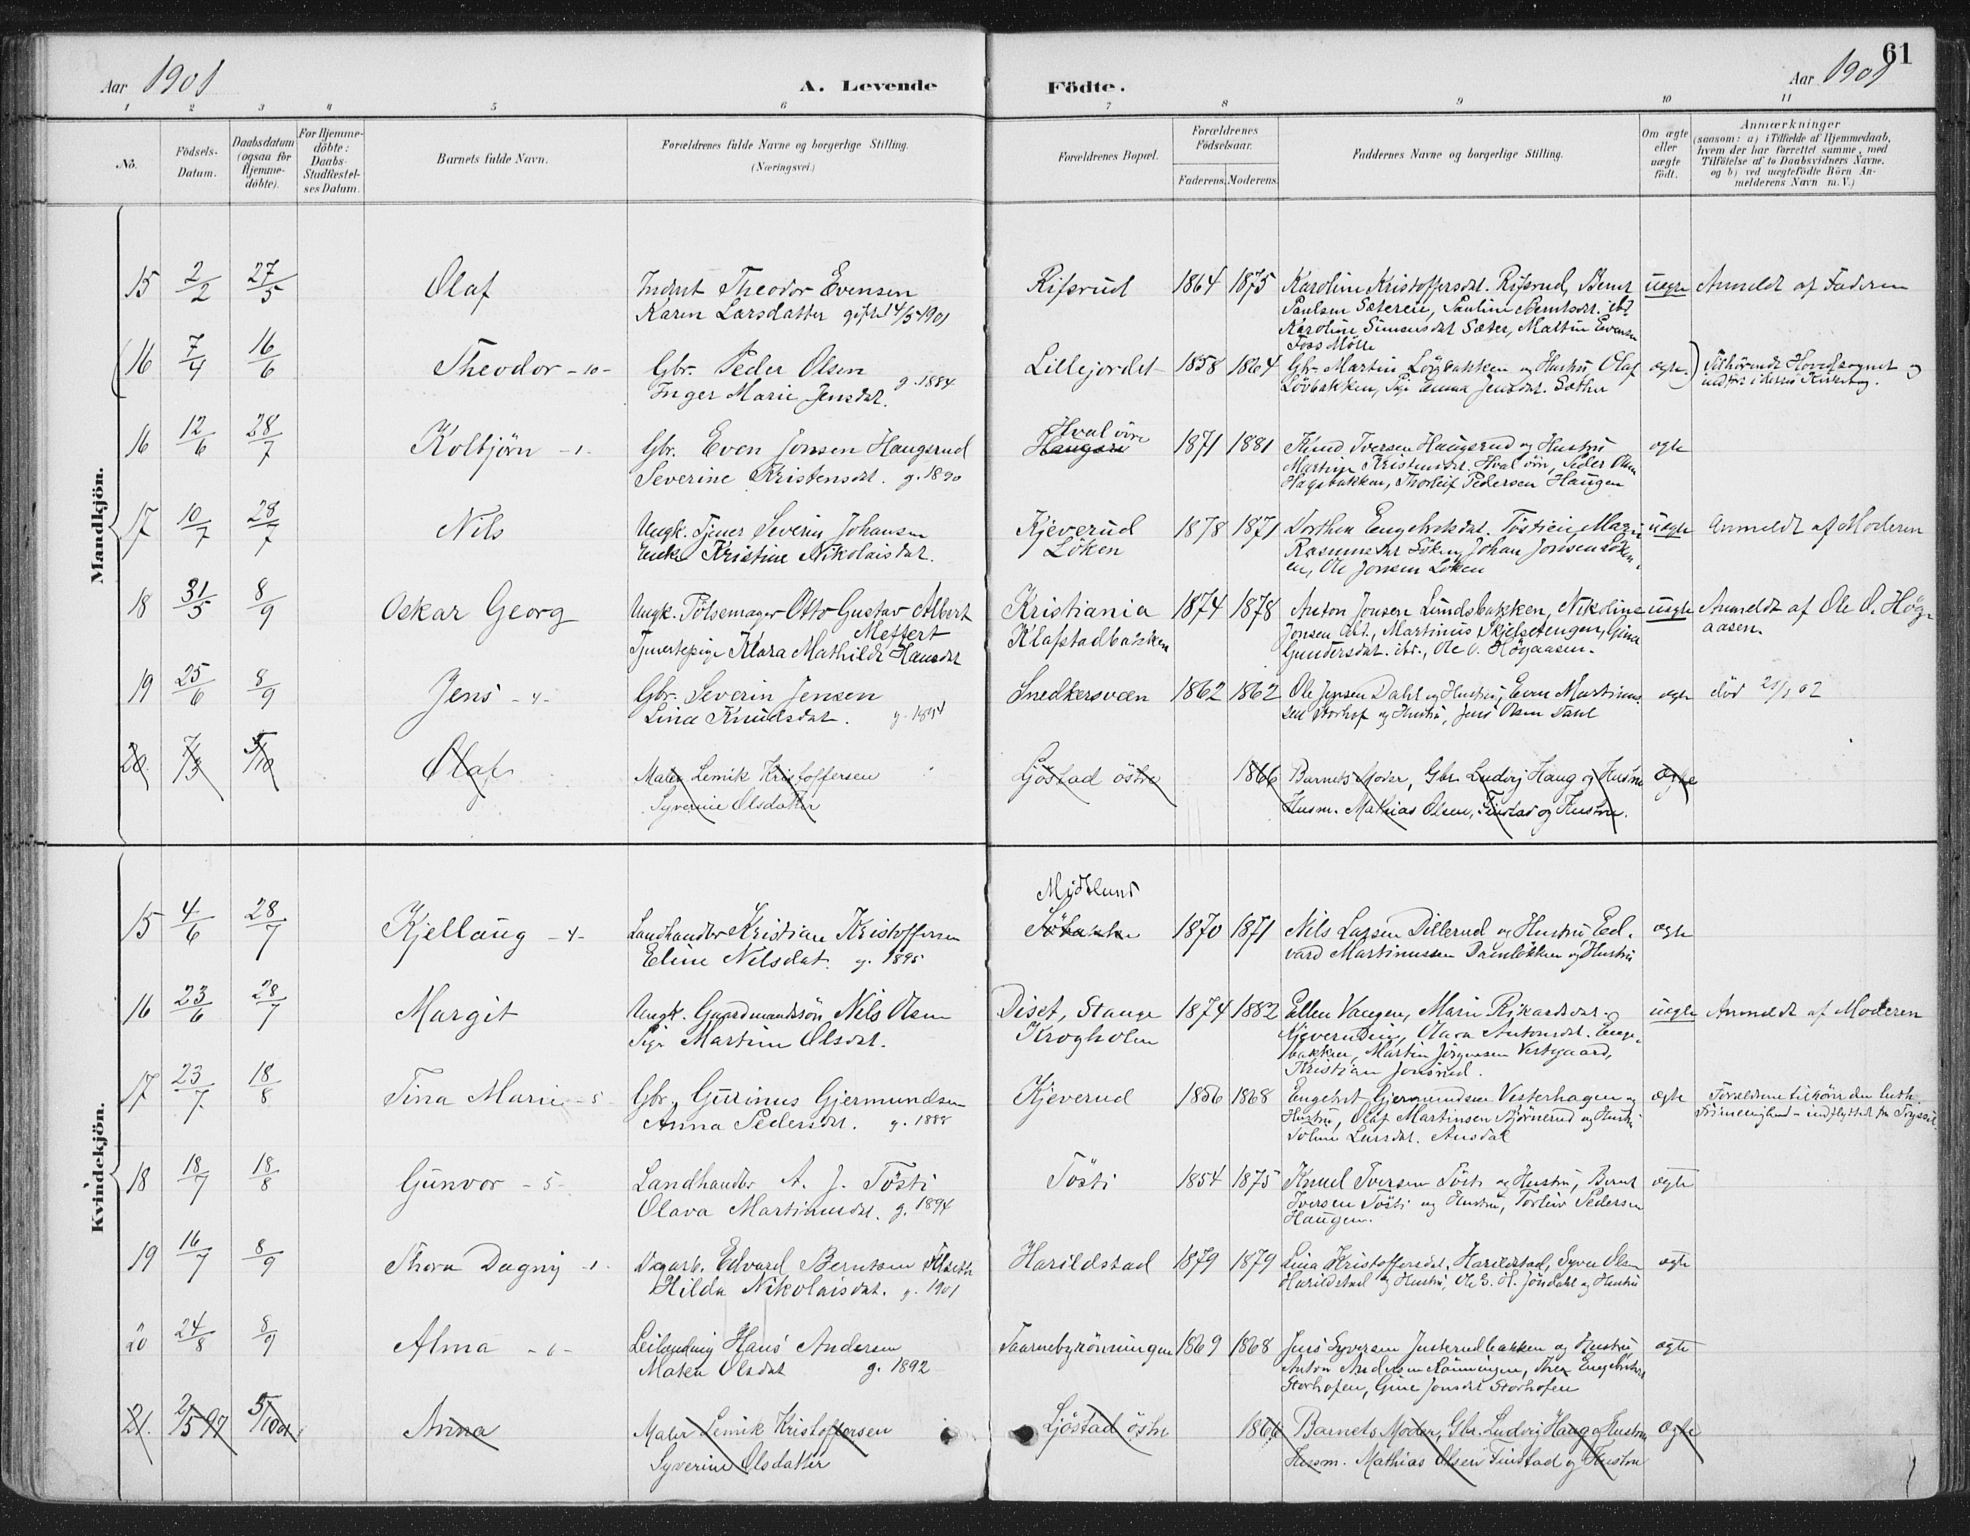 61
Aar 1901
A. Levende
Födte.
Aar 1901
1 2 3 4 5 6 7 8 9 10 11
Nö.
Födsels-
Datum.
Daabsdatum
(ogsaa for
Hjemme-
döbte).
For Hjemme-
döbte:
Daabs-
Stadfæstel-
ses Datum.
Barnets fulde Navn.
Forældrenes fulde Navne og borgerlige Stilling.
(Næringsvei.)
Forældrenes Bopæl.
Forældrenes
Födselsaar.
Faderens. Moderens.
Faddernes Navne og borgerlige Stilling.
Om ægte
eller
uægte
födt.
Anmærkninger
(saasom: a) i Tilfælde af Hjemmedaab,
hvem der har forrettet samme, med
Tilföielse af to Daabsvidners Navne,
og b) ved uægtefödte Börn An-
melderens Navn m. V.)
Mandkjön.
15 2/2 27/5 Olaf
Indst Theodor Evensen
Karen Larsdatter gift 4/5 1901
Rifsrud 1864 1875
Karoline Kristoffersdat. Rifsrud, Bernt
Paulsen Sætereie, Pauline Berntsdat. ibd.
Karoline Simensdat Sæter, Mattin Evensen
Foss Mölle
uægte Anmeldt af Faderen
(16 7/4 16/6 Theodor - 10 -
Gbr. Peder Olsen
Inger Marie Jensdat. g. 1884
Lillejordet 1858 1864
Gbr. Martin Lövbakken og Hustru, Olaf
Lövbakken, Pige Emma Jensdat. Sæther
ægte.) Tilhörende Hovedsognet og
indført i dettes Kirkebog.
16 12/6 28/7 Kolbjörn - 1 -
Gbr. Even Jonsen Haugsrud
Severine Kristensdat. g. 1890
Hval övre
1871 1881
Knud Iversen Haugsrud og Hustru
Martine Kristensdat. Hval övr, Peder Olsen
Hagabakken, Thorleif Pedersen Haugen
ægte
17 10/7 28/7 Nils
Ungk. Tjener Severin Johansen
Enke Kristine Nikolaisdat.
Kjeverud
Löken
1878 1871
Dorthea Engebretsdat. Töstieie, Magn
Rasmusdat Löken, Johan Jonsen Löken
en, Ole Jonsen Löken
uægte Anmeldt af Moderen
18 31/5 8/9 Oskar Georg
Ungk. Pölsemager Otto Gustav Albert
Meffert
Tjenestepige Klara Mathilde Hansdat
Kristiania
Klafstadbakken
1874 1878
Anton Jonsen Lundsbakken, Nikoline
Jonsen ibd., Martinus Skjelsetengen, Gina
Gundersdat. ibd., Ole O. Högaasen.
uægte Anmeldt af Ole O. Hög-
aasen.
19 25/6 8/9 Jens - 4 -
Gbr. Severin Jensen
Lina Knudsdat. g. 1894
Snedkersveen 1862 1862
Ole Jensen Dahl og Hustru, Even Martinus-
sen Storhof og Hustru, Jens Olsen Dahl
ægte död
20. 7/3 5/10 Olaf
Maler Lemik Kristoffersen
Syverine Olsdatter
Ljöstad östre 1866
Barnets Moder, Gbr. Ludvig Haug og Hustru
Husm. Mathias Olsen, Finstad og Hustru.
Ægte
Kvindekjön.
15 4/6 28/7 Kjellaug - 4 -
Landhandler Kristian Kristoffersen
Eline Nilsdat. g. 1895
Midtlund
1870 1871
Nils Larsen Dillerud og Hustru Ed-
vard Martinussen Damlökken og Hustru
ægte
16 23/6 28/7 Margit
Ungk. Gaardmandssön Nils Olsen
Pige Martine Olsdat.
Diset, Stange
Krogholm
1874 1882
Ellen Vangen, Marie Rikardsdat.
Kjeverudeie, Olava Antonsdat. Enge-
bakken, Martin Jörgensen Vestgaard,
Kristian Jonsrud.
uægte Anmeldt af Moderen
17 23/7 18/8 Tina Marie - 5
Gbr. Gurinus Gjermundsen
Anna Pedersdat. g. 1888
Kjeverud 1856 1868
Engebret Gjermundsen Vesterhagen og
Hustru, Olaf Martinsen Björnerud og Hustru
Soline Larsdat. Ausdal
ægte Forældrene tilhörer den luth.
Frimenighed - indflyttet fra Trysil.
18 18/7 18/8 Gunvor - 5 -
Landhandler A. J. Tösti
Olava Martinusdat. g. 1894
Tösti 1854 1875
Knud Iversen Tösti og Hustru, Bernt
Iversen Tösti og Hustru, Torleiv Pedersen
Haugen.
ægte
19 16/7 8/9 Thora Dagny - 1 -
Dagarb. Edvard Berntsen Flseth
Hilda Nikolaisdat. g. 1901
Harildstad 1879 1879
Lina Kristoffersdat. Harildstad, Syver Olsen
Harildstad og Hustru, Ole E. H. Jöndahl og Hustru
ægte
20 24/8 8/9 Alma - 6 -
Leilænding Hans Andersen
Maten Olsdat g. 1892
Taarnebyrönningen 1869 1868
Jens Syversen Justerudbakken og Hustru
Anton Andersen Rönningen, Thea Engebretsdat
Storhofen, Gine Jonsdat Storhofen
ægte
21. 2/5 97 5/10 01 Anna
Maler Lemik Kristoffersen
Syverine Olsdatter
Ljöstad östre 1866
Barnets Moder, Gbr. Ludvig Haug og Hustru
Husm. Mathias Olsen Finstad og Hustru
Ægte